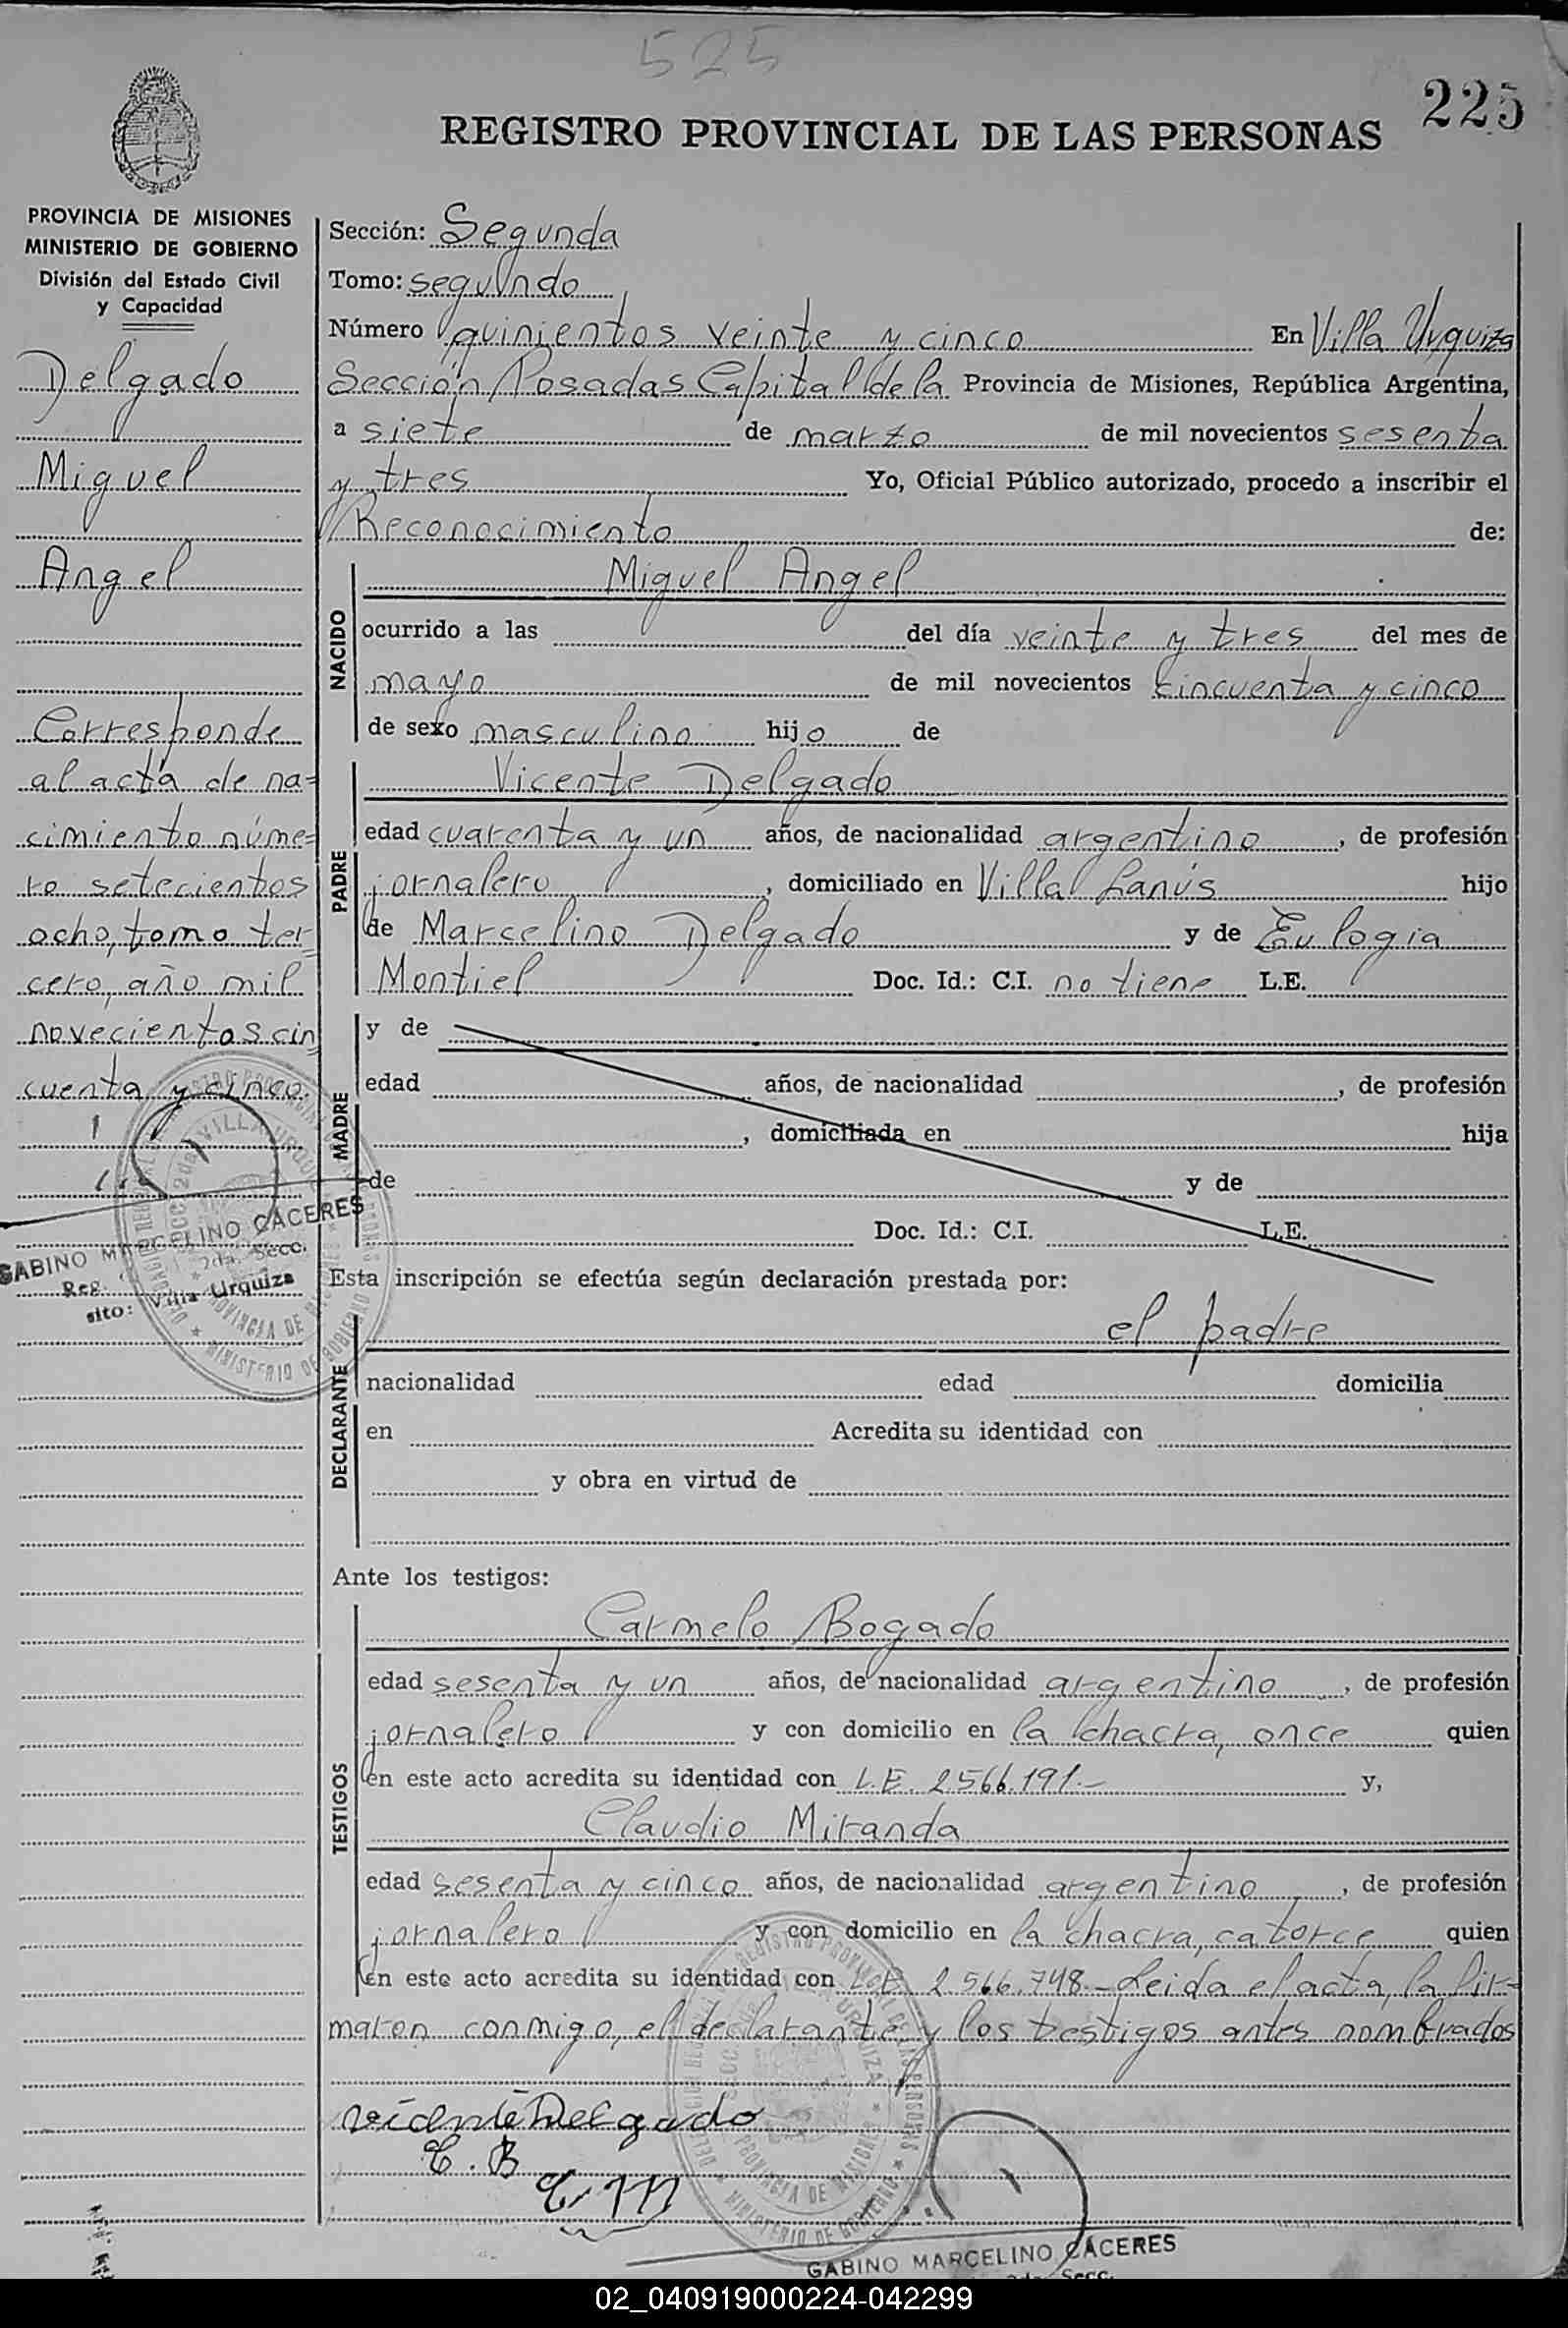 525
225
REGISTRO PROVINCIAL DE LAS PERSONAS
PROVINCIA DE MISIONES
MINISTERIO DE GOBIERNO
División del Estado Civil
y Capacidad
Delgado
Miguel
Angel
Corresponde
al acta de na=
cimiento núme=
ro setecientos
ocho, tomo ter=
cero, año mil
novecientos cin
cuenta y cinco.
GABINO MARCELINO CACERES
Reg. 2da. Secc.
sito: Villa Urquiza
Sección: Segunda
Tomo: segundo
Número quinientos veinte y cinco En Villa Urquiza
Sección Posadas Capital de la Provincia de Misiones, República Argentina,
a siete de marzo de mil novecientos sesenta
y tres Yo, Oficial Público autorizado, procedo a inscribir el
Reconocimiento de:
NACIDO
Miguel Angel
ocurrido a las del día veinte y tres del mes de
mayo de mil novecientos cincuenta y cinco
de sexo masculino hijo de
PADRE
Vicente Delgado
edad cuarenta y un años, de nacionalidad argentino, de profesión
jornalero, domiciliado en Villa Lanús hijo
de Marcelino Delgado y de Eulogia
Montiel Doc. Id.: C.I. no tiene L.E.
MADRE
y de
edad años, de nacionalidad , de profesión
, domiciliada en hija
de y de
Doc. Id.: C.I. L.E.
Esta inscripción se efectúa según declaración prestada por:
DECLARANTE
el padre
nacionalidad edad domicilia
en Acredita su identidad con
y obra en virtud de
Ante los testigos:
TESTIGOS
Carmelo Bogado
edad sesenta y un años, de nacionalidad argentino, de profesión
jornalero y con domicilio en la chacra, once quien
en este acto acredita su identidad con L.E. 2.566.191.- y,
Claudio Miranda
edad sesenta y cinco años, de nacionalidad argentino, de profesión
jornalero y con domicilio en la chacra, catorce quien
en este acto acredita su identidad con L.E. 2.566.748.- Leida el acta, la fir=
maron conmigo, el declarante y los testigos antes nombrados
Vicente Delgado
C. B
C. M
GABINO MARCELINO CACERES
Secc.
02_040919000224-042299